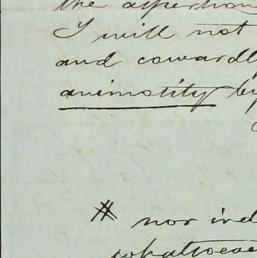 the assertion
I will not
and cowardl
animosity by
# nor ind
whatsoeve